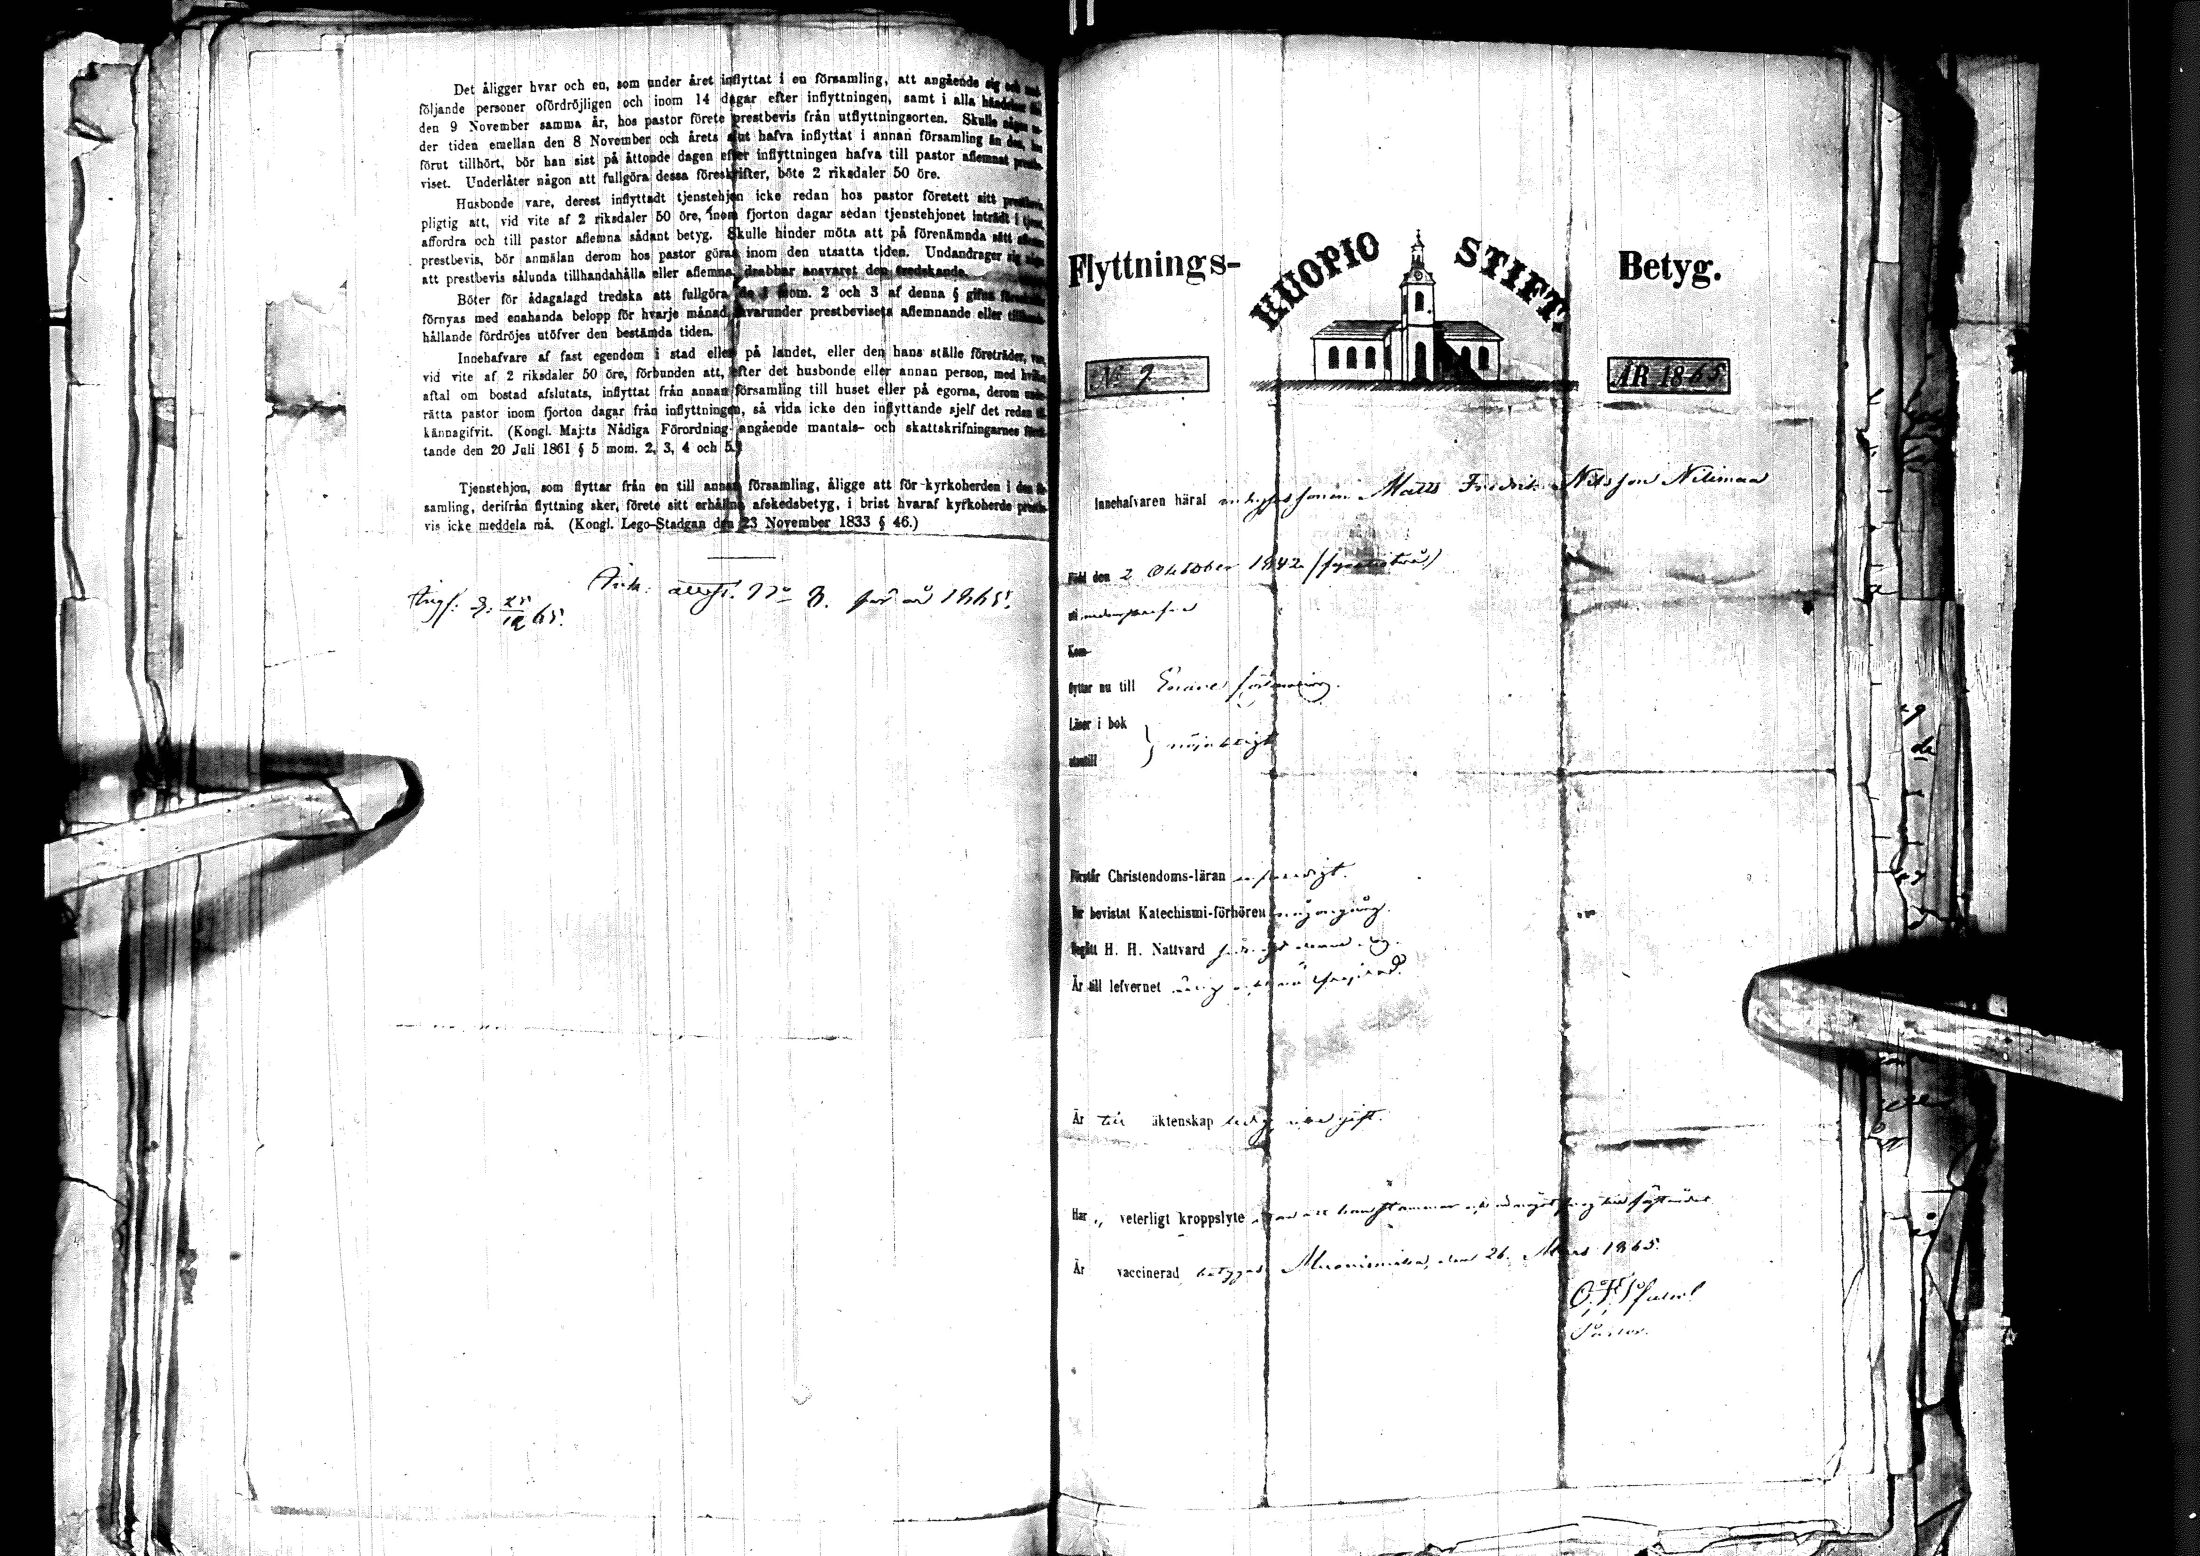 Det åligger hvar och en, som under året inflyttat i en församling, att angående sig och med-
följande personer ofördröjligen och inom 14 dagar efter inflyttningen, samt i alla händelser
den 9 November samma år, hos pastor förete prestbevis från utflyttningsorten. Skulle någon un-
der tiden emellan den 8 November och årets slut hafva inflyttat i annan församling än den, han
förut tillhört, bör han sist på åttonde dagen efter inflyttningen hafva till pastor aflemnat prestbe-
viset. Underlåter någon att fullgöra dessa föreskrifter, böte 2 riksdaler 50 öre.
Husbonde vare, derest inflyttadt tjenstehjon icke redan hos pastor företett sitt prestbevis,
pligtig att, vid vite af 2 riksdaler 50 öre, inom fjorton dagar sedan tjenstehjonet inträdt i tjenst,
affordra och till pastor aflemna sådant betyg. Skulle hinder möta att på förenämnda sätt aflemna
prestbevis, bör anmälan derom hos pastor göras inom den utsatta tiden. Undandrager sig någon
att prestbevis sålunda tillhandahålla eller aflemna, drabbar ansvaret den tredskande.
Böter för ådagalagd tredska att fullgöra de i mom. 2 och 3 af denna § gifna föreskrifter
förnyas med enahanda belopp för hvarje månad, hvarunder prestbevisets aflemnande eller tillhanda-
hållande fördröjes utöfver den bestämda tiden.
Innehafvare af fast egendom i stad eller på landet, eller den hans ställe företräder, vare
vid vite af 2 riksdaler 50 öre, förbunden att, efter det husbonde eller annan person, med hvilken
aftal om bostad afslutats, inflyttat från annan församling till huset eller på egorna, derom under-
rätta pastor inom fjorton dagar från inflyttningen, så vida icke den inflyttande sjelf det redan
kännagifvit. (Kongl. Maj:ts Nådiga Förordning angående mantals- och skattskrifningarnes förrät-
tande den 20 Juli 1861 § 5 mom. 2, 3, 4 och 5.)
Tjenstehjon, som flyttar från en till annan församling, åligge att för kyrkoherden i den för-
samling, derifrån flyttning sker, förete sitt erhållna afskedsbetyg, i brist hvaraf kyrkoherde prestbe-
vis icke meddela må. (Kongl. Lego-Stadgan den 23 November 1833 § 46.)
attest. No 8. för år 1865.
65.
Flyttnings- KUOPIO STIFT. Betyg.
No 9 ÅR 1865
Innehafvaren häraf Matts Fredrik Nilsson Niliman
Född den 2 Oktober 1842 (fyratiotvå)
Kom-
flyttar nu till Enare församling.
Läser i bok
utantill } nöjaktigt
Förstår Christendoms-läran
Har bevistat Katechismi-förhören
Begått H. H. Nattvard
Är till lefvernet
Är till äktenskap ledig
Har veterligt kroppslyte
Är vaccinerad betygas, Muonioniska, den 26. Mars 1865.
Pastor.